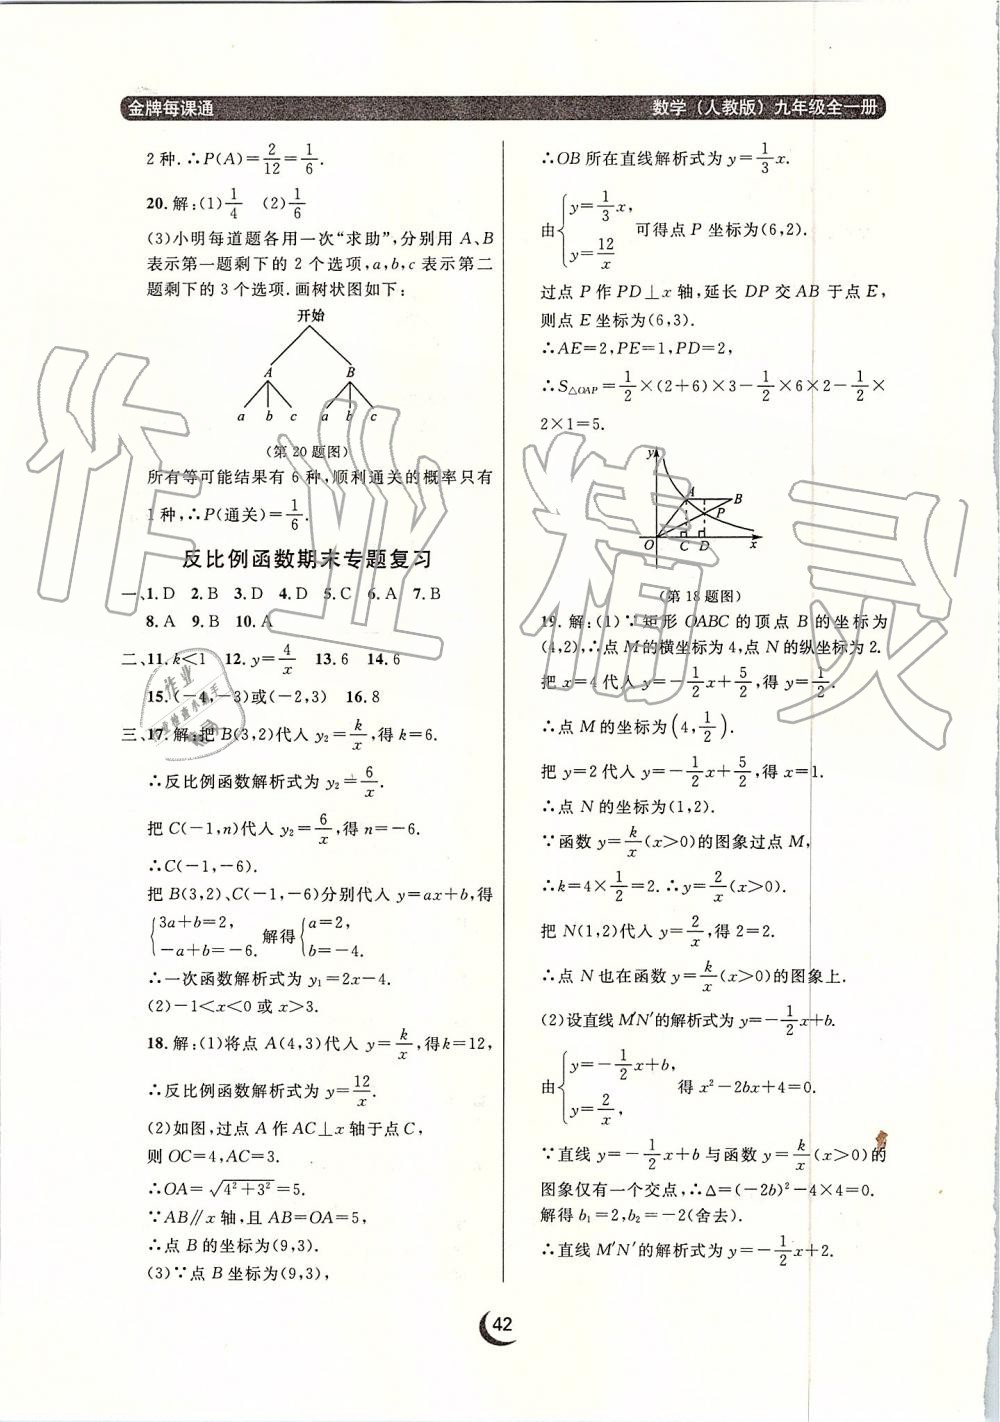 金牌每课通
数学（人教版）九年级全一册
2种.∴P(A)=2/12=1/6.
20.解:(1)1/4 (2)1/6
(3)小明每道题各用一次“求助”,分别用A、B
表示第一题剩下的2个选项,a,b,c表示第二
题剩下的3个选项.画树状图如下:
开始
A B
a b c a b c
(第20题图)
所有等可能结果有6种,顺利通关的概率只有
1种,∴P(通关)=1/6.
反比例函数期末专题复习
一、1.D 2.B 3.D 4.D 5.C 6.A 7.B
8.A 9.B 10.A
二、11.k<1 12.y=4/x 13.6 14.6
15.(-4,-3)或(-2,3) 16.8
三、17.解:把B(3,2)代入y₂=k/x,得k=6.
∴反比例函数解析式为y₂=6/x.
把C(-1,n)代入y₂=6/x,得n=-6.
∴C(-1,-6).
把B(3,2)、C(-1,-6)分别代入y=ax+b,得
{3a+b=2, -a+b=-6. 解得{a=2, b=-4.
∴一次函数解析式为y₁=2x-4.
(2)-1<x<0或x>3.
18.解:(1)将点A(4,3)代入y=k/x,得k=12,
∴反比例函数解析式为y=12/x.
(2)如图,过点A作AC⊥x轴于点C,
则OC=4,AC=3.
∴OA=√(4²+3²)=5.
∵AB∥x轴,且AB=OA=5,
∴点B的坐标为(9,3).
(3)∵点B坐标为(9,3),
∴OB所在直线解析式为y=1/3x.
由{y=1/3x, y=12/x 可得点P坐标为(6,2).
过点P作PD⊥x轴,延长DP交AB于点E,
则点E坐标为(6,3).
∴AE=2,PE=1,PD=2,
∴S△OAP=1/2×(2+6)×3-1/2×6×2-1/2×
2×1=5.
y
A B
P
O C D x
(第18题图)
19.解:(1)∵矩形OABC的顶点B的坐标为
(4,2),∴点M的横坐标为4,点N的纵坐标为2.
把x=4代入y=-1/2x+5/2,得y=1/2.
∴点M的坐标为(4,1/2).
把y=2代入y=-1/2x+5/2,得x=1.
∴点N的坐标为(1,2).
∵函数y=k/x(x>0)的图象过点M,
∴k=4×1/2=2.∴y=2/x(x>0).
把N(1,2)代入y=2/x,得2=2.
∴点N也在函数y=k/x(x>0)的图象上.
(2)设直线M′N′的解析式为y=-1/2x+b.
由{y=-1/2x+b, y=2/x, 得x²-2bx+4=0.
∵直线y=-1/2x+b与函数y=k/x(x>0)的
图象仅有一个交点,∴Δ=(-2b)²-4×4=0.
解得b₁=2,b₂=-2(舍去).
∴直线M′N′的解析式为y=-1/2x+2.
42
作业精灵